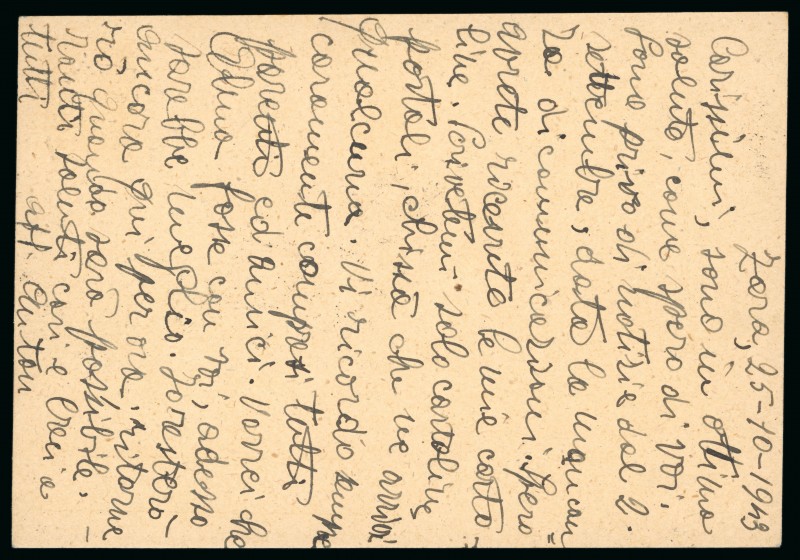 Zara, 25-10-1943
Carissimi, sono in ottima
salute, come spero di voi.
Sono privo di notizie dal 2.
settembre, data la mancan=
za di comunicazioni. Spero
avrete ricevuto le mie carto
line. Scrivetemi solo cartoline
postali, chissà che ne arrivi
qualcuna. Vi ricordo sempre
caramente compresi tutti
parenti ed amici. Vorrei che
fosse con voi, adesso
sarebbe meglio. Io resterò
ancora qui per ora, ritorne
rò quando sarà possibile. -
Tanti saluti cari e baci a
tutti aff. Anton